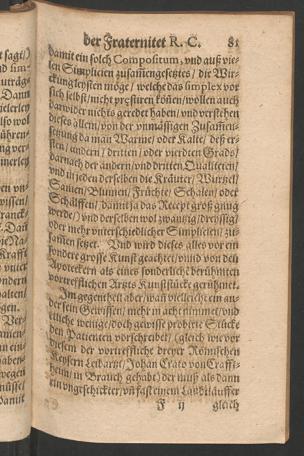 der Fraternitet R. C. 81
damit ein solch Compositum, vnd auß vie-
len Simplicien zusam̃engesetztes / die Wir-
ckung leysten möge / welche das simplex vor
sich selbst / nicht præstiren kön̄en / wollen auch
darwider nichts geredet haben / vnd verstehen
dieses allein / von der vnmässigen Zusam̃en-
setzung da man Warme / oder Kalte / deß er-
sten / andern / dritten / oder vierdten Grads /
darnach der andern / vnd dritten Qualiteten /
vnd in jeden derselben die Kräuter / Wurtzel /
Samen / Blumen / Früchte / Schalen / oder
Schälffen / damit ja das Recept groß gnug
werde / vnd derselben wol zwantzig / dreyssig /
oder mehr vnterschiedlicher Simplicien / zu-
sam̃en setzet. Vnd wird dieses alles vor ein
sondere grosse Kunst geachtet / vnnd von den
Apoteckern als eines sonderlich berühmten
vortrefflichen Artzts Kunststücke gerühmet.
Im gegentheil aber / wan̄ vielleicht ein an-
der sein Gewissen / mehr in acht nimmet / vnd
etliche wenige / doch gewisse probirte Stücke
den Patienten vorschreibet / (gleich wie vor
diesem der vortrefflicht dreyer Römischen
Keysern Leibartzt / Johan Crato von Crafft-
heim / in Brauch gehabt) der muß als dann
ein vngeschickter / vn̄ fast einem Landtläuffer
F ij gleich